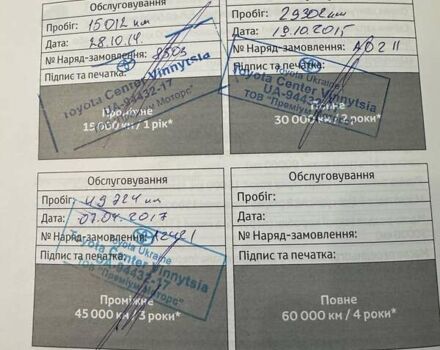 Обслуговування
Пробіг: 15012 км
Дата: 28.10.14
№ Наряд-замовлення:
Підпис та печатка:
Toyota Center Vinnytsia
UA-94432-17
Проміжне
15 000 км / 1 рік*
Обслуговування
Пробіг: 29302 км
Дата: 19.10.2015
№ Наряд-замовлення: A0211
Підпис та печатка:
Toyota Ukraine
Toyota Center Vinnytsia
UA-94432-17
ТОВ "Преміум Моторс"
Повне
30 000 км / 2 роки*
Обслуговування
Пробіг: 49724 км
Дата: 07.04.2017
№ Наряд-замовлення:
Підпис та печатка:
Toyota Ukraine
Toyota Center Vinnytsia
UA-94432-17
ТОВ "Преміум Моторс"
Проміжне
45 000 км / 3 роки*
Обслуговування
Пробіг:
Дата:
№ Наряд-замовлення:
Підпис та печатка:
Повне
60 000 км / 4 роки*